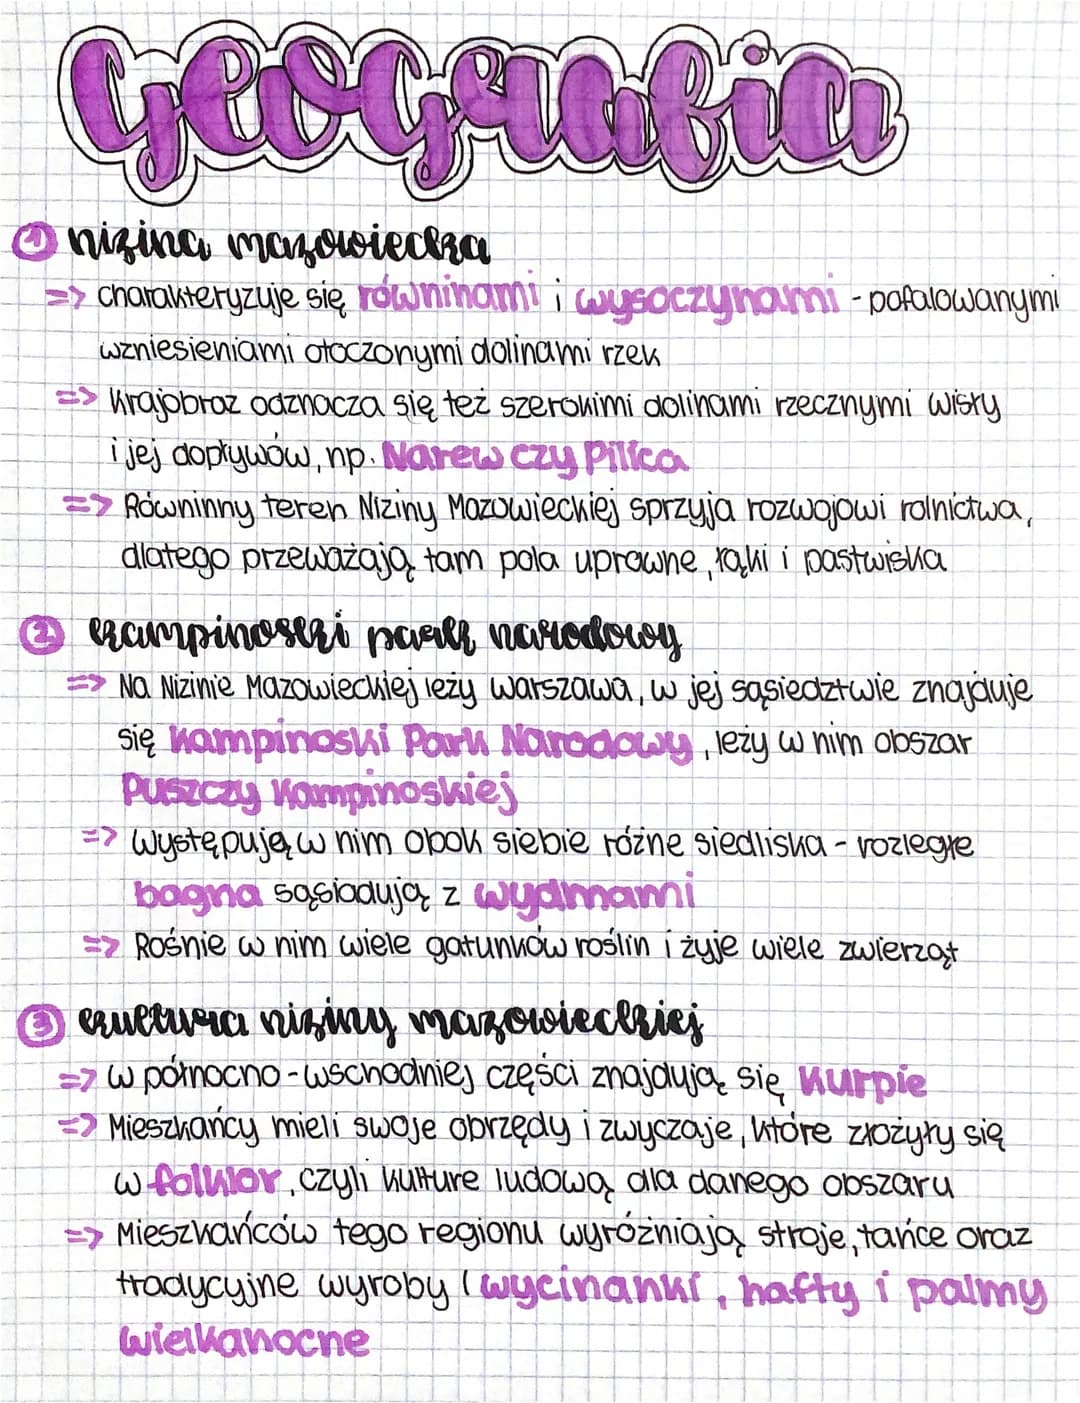 Geografia
① nizina mazowiecka
=> charakteryzuje się równinami i wysoczynami - pofalowanymi
wzniesieniami otoczonymi dolinami rzek
=> Krajobraz odznacza się też szerokimi dolinami rzecznymi Wisły
i jej dopływów, np. Narew czy Pilica
=> Równinny teren Niziny Mazowieckiej sprzyja rozwojowi rolnictwa,
dlatego przeważają tam pola uprawne, łąki i pastwiska
② kampinoski park narodowy
=> Na Nizinie Mazowieckiej leży Warszawa, w jej sąsiedztwie znajduje
się Kampinoski Park Narodowy, leży w nim obszar
Puszczy Kampinoskiej
=> Występują w nim obok siebie różne siedliska - rozległe
bagna sąsiadują z wydmami
=> Rośnie w nim wiele gatunków roślin i żyje wiele zwierząt
③ kultura niziny mazowieckiej
=> W północno-wschodniej części znajdują się Kurpie
=> Mieszkańcy mieli swoje obrzędy i zwyczaje, które złożyły się
w folklor, czyli kulture ludową dla danego obszaru
=> Mieszkańców tego regionu wyróżniają stroje, tańce oraz
tradycyjne wyroby (wycinanki, hafty i palmy
wielkanocne